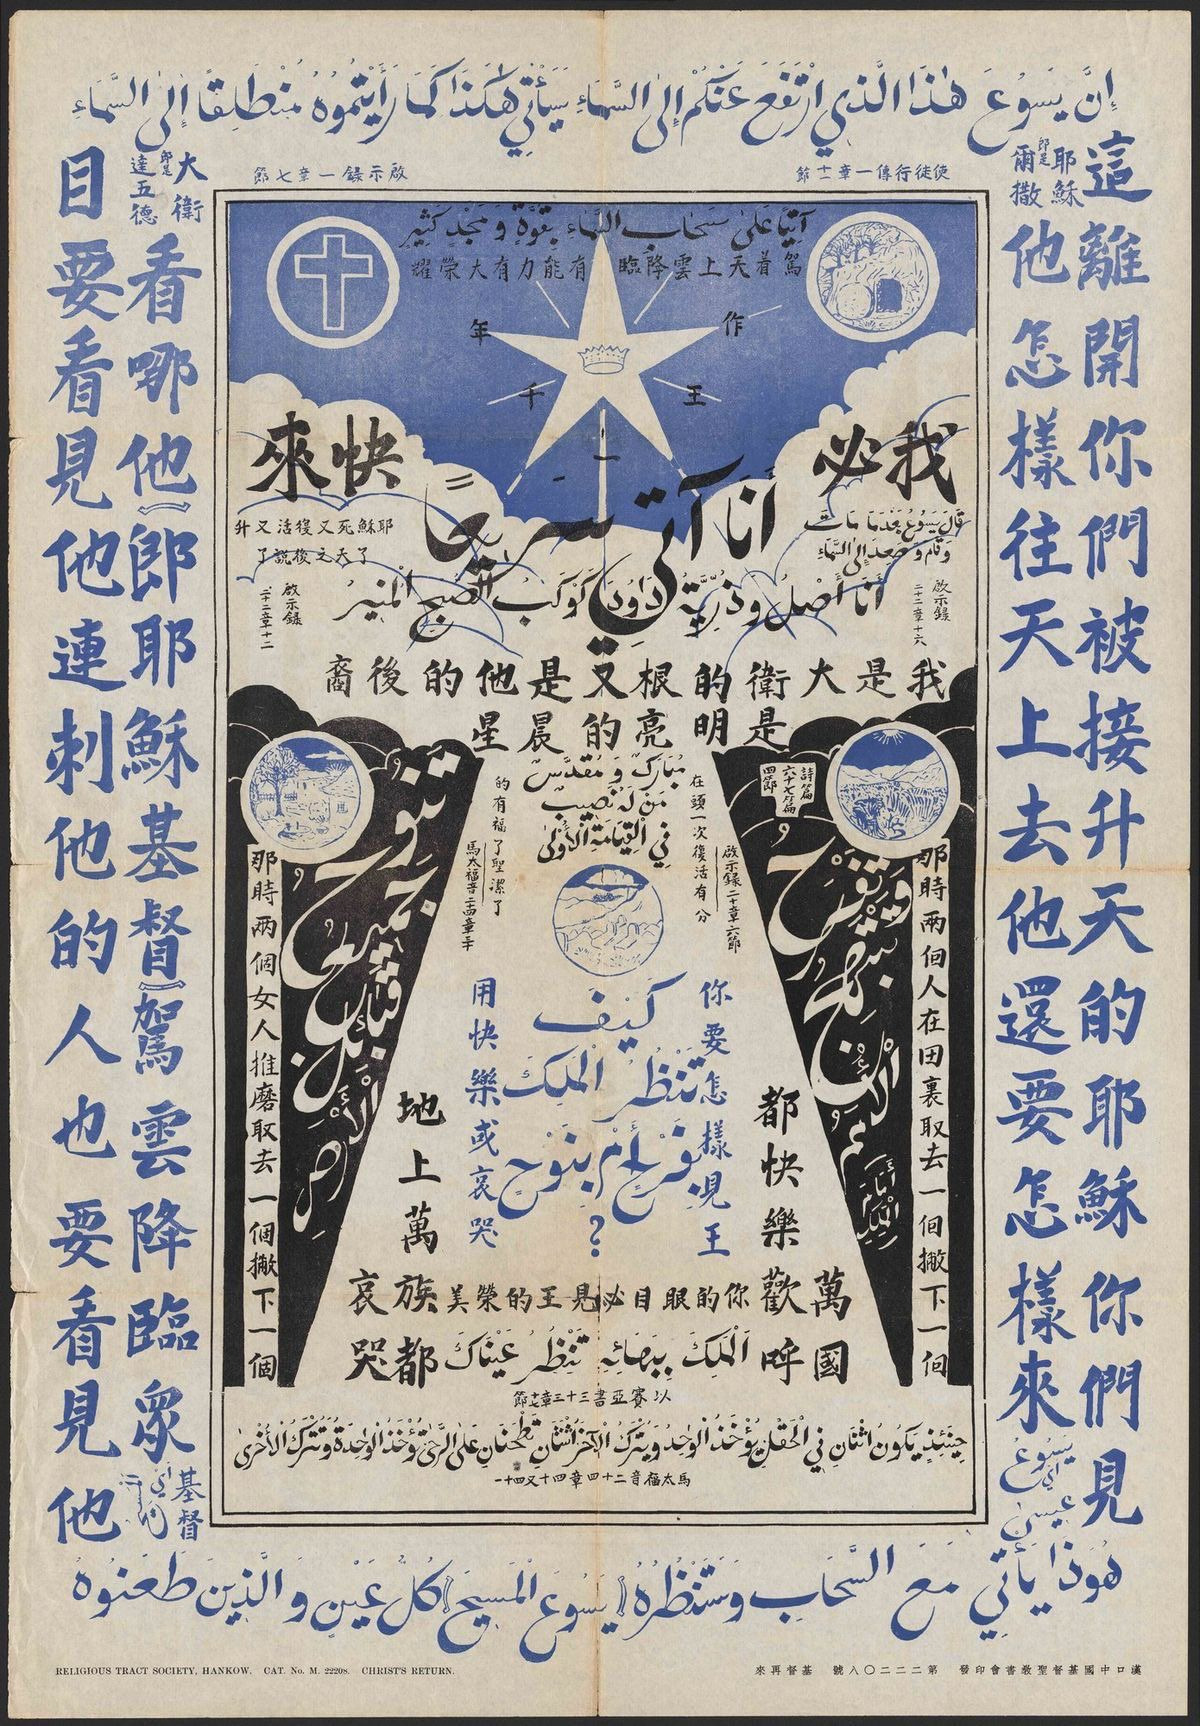 إِنَّ يَسُوعَ هٰذَا الَّذِي ارْتَفَعَ عَنْكُمْ إِلَى السَّمَاءِ سَيَأْتِي هٰكَذَا كَمَا رَأَيْتُمُوهُ مُنْطَلِقًا إِلَى السَّمَاءِ
使徒行傳一章十一節
啟示錄一章七節
這離開你們被接升天的耶穌你們見
耶穌
即是
爾撒
他怎樣往天上去他還要怎樣來
يَسُوعُ
أي
عيسى
大衛
即是
達五德
看哪他(即耶穌基督)駕雲降臨眾
基督
目要看見他連刺他的人也要看見他
آتِيًا عَلَى سَحَابِ السَّمَاءِ بِقُوَّةٍ وَمَجْدٍ كَثِيرٍ
駕着天上雲降臨有能力有大榮耀
作王一千年
我必快來
أَنَا آتِي سَرِيعًا
قَالَ يَسُوعُ بَعْدَمَا مَاتَ
وَقَامَ وَصَعِدَ إِلَى السَّمَاءِ
耶穌死又復活又升
了天之後說了
أَنَا أَصْلُ وَذُرِّيَّةُ دَاوُدَ كَوْكَبُ الصُّبْحِ الْمُنِيرُ
啟示錄
二十二章十六
啟示錄
二十二章十二
我是大衛的根又是他的後裔
是明亮的晨星
مُبَارَكٌ وَمُقَدَّسٌ
مَنْ لَهُ نَصِيبٌ
فِي الْقِيَامَةِ الْأُولَى
在頭一次復活有分
的有福了聖潔了
啟示錄二十章六節
詩篇
六十七篇
四節
那時兩個人在田裏取去一個撇下一個
那時兩個女人推磨取去一個撇下一個
تَنُوحُ جَمِيعُ قَبَائِلِ الْأَرْضِ
你要怎樣見王
用快樂或哀哭
كَيْفَ
تَنْظُرُ الْمَلِكَ
بِفَرَحٍ أَمْ بِنَوْحٍ
؟
萬國
都快樂歡呼
地上萬族都
哀哭
你的眼目必見王的榮美
الْمَلِكَ بِبَهَائِهِ تَنْظُرُ عَيْنَاكَ
以賽亞書三十三章十七節
حِينَئِذٍ يَكُونُ اثْنَانِ فِي الْحَقْلِ يُؤْخَذُ الْوَاحِدُ وَيُتْرَكُ الْآخَرُ اثْنَتَانِ تَطْحَنَانِ عَلَى الرَّحَى تُؤْخَذُ الْوَاحِدَةُ وَتُتْرَكُ الْأُخْرَى
馬太福音二十四章四十又四十一
هُوَذَا يَأْتِي مَعَ السَّحَابِ وَسَتَنْظُرُهُ (يَسُوعَ الْمَسِيحَ) كُلُّ عَيْنٍ وَالَّذِينَ طَعَنُوهُ
RELIGIOUS TRACT SOCIETY, HANKOW. CAT. No. M. 22208. CHRIST'S RETURN.
漢口中國基督聖教書會印發 第二二二〇八號 基督再來